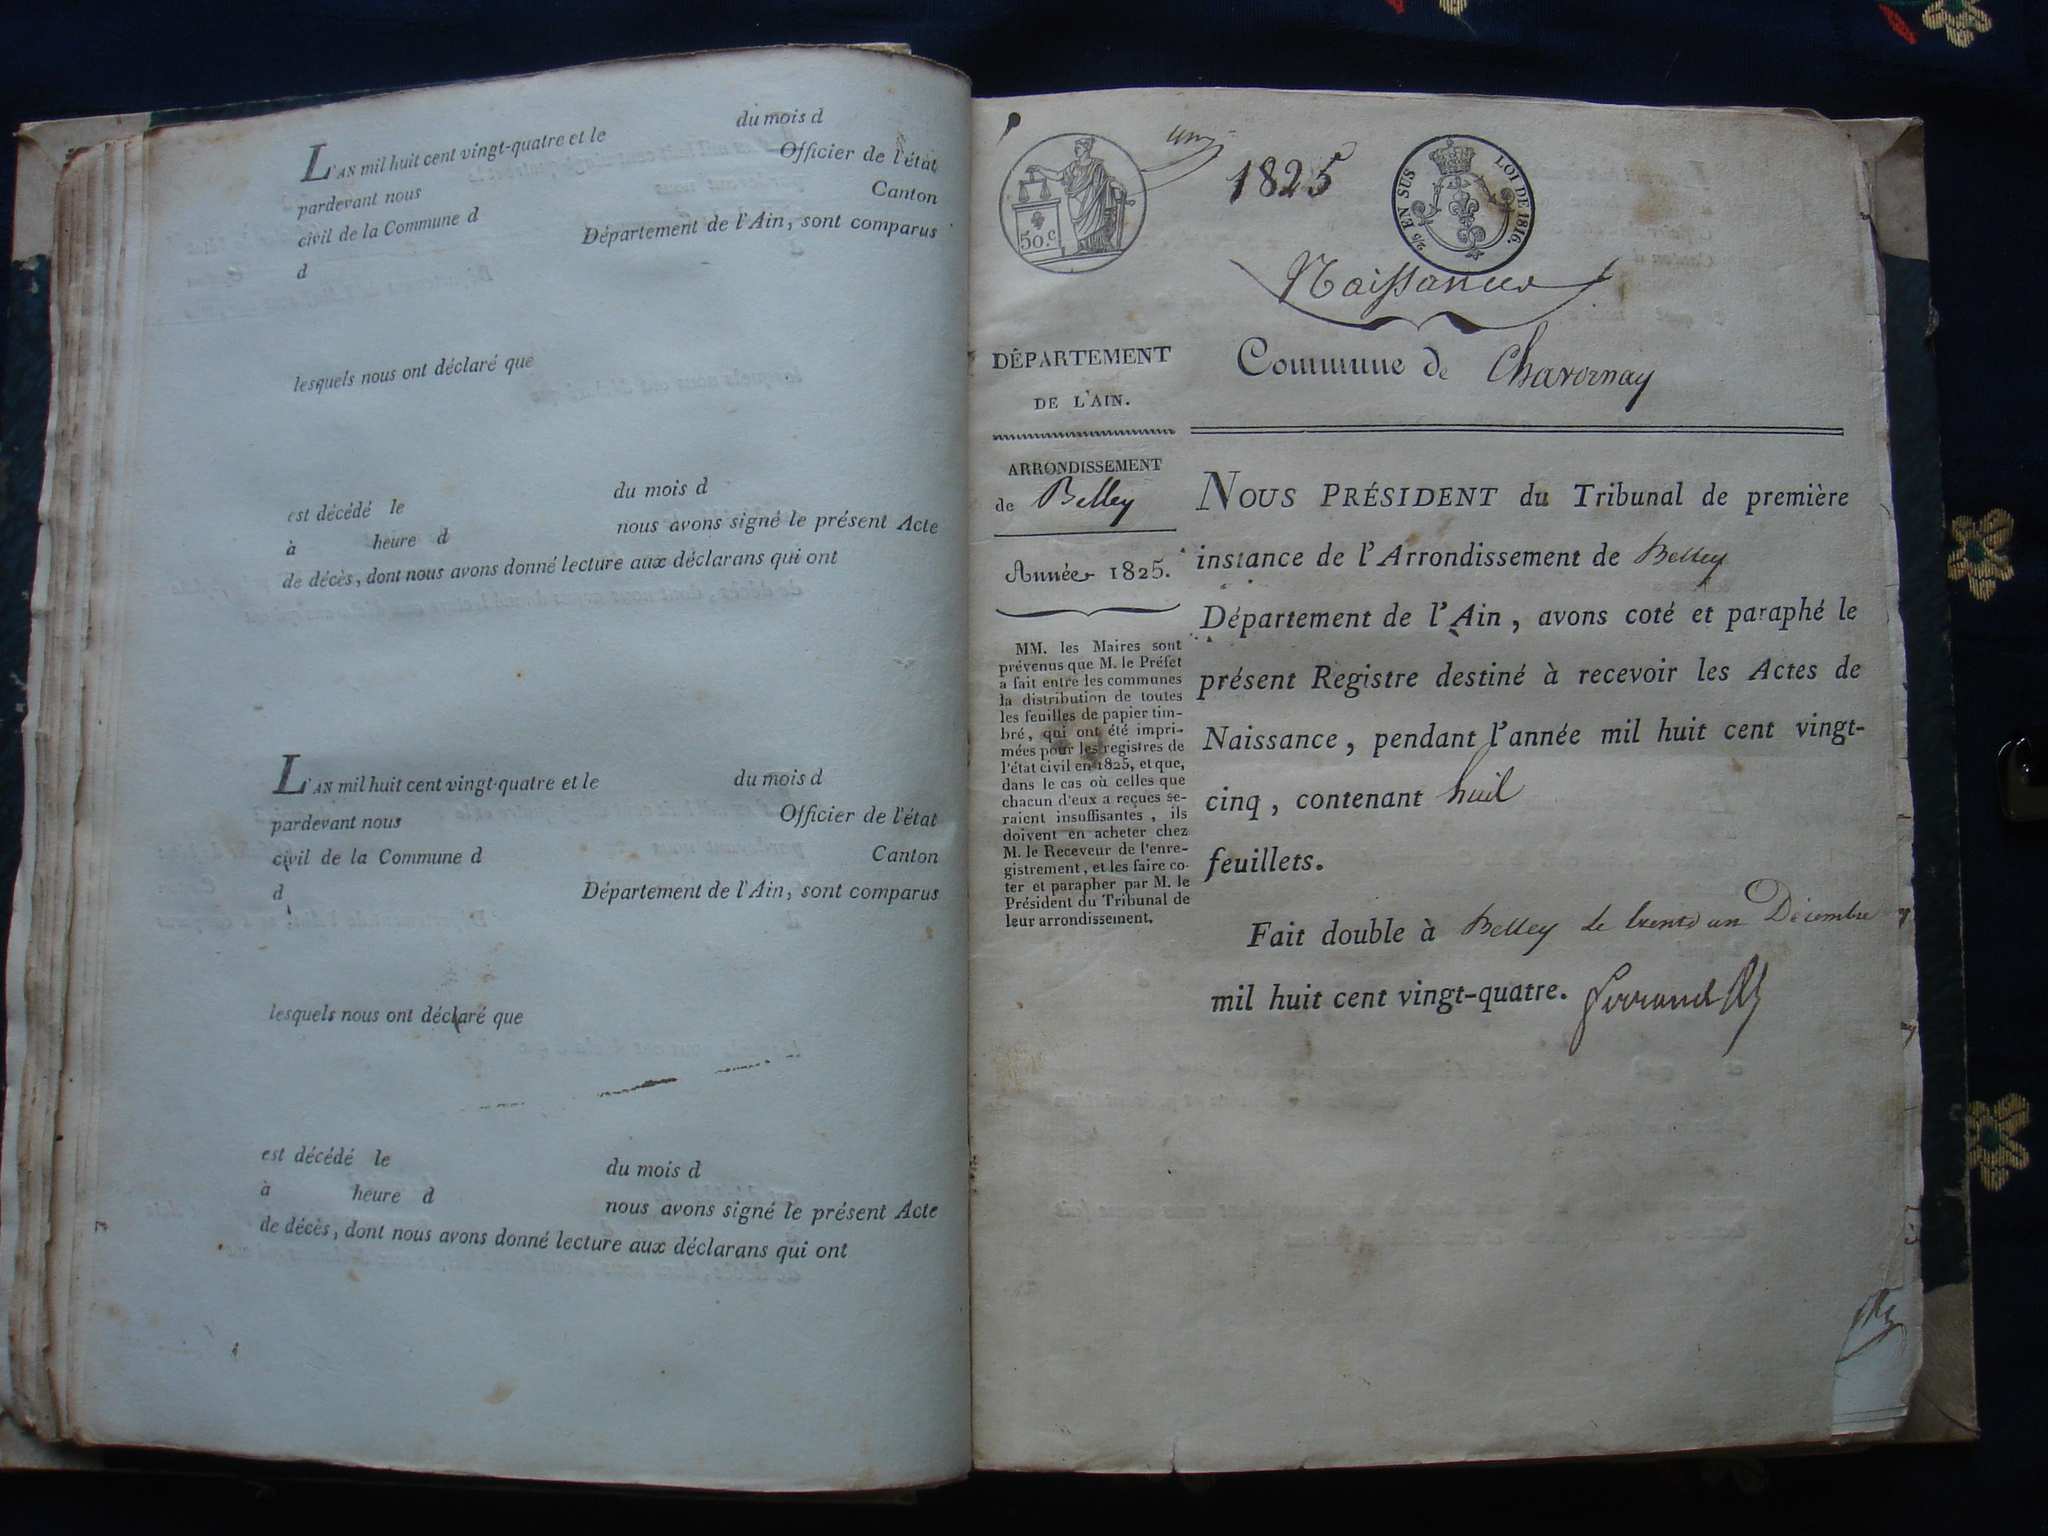 L'AN mil huit cent vingt-quatre et le du mois d
pardevant nous Officier de l'état
civil de la Commune d Canton
d Département de l'Ain, sont comparus
lesquels nous ont déclaré que
est décédé le du mois d
à heure d nous avons signé le présent Acte
de décès, dont nous avons donné lecture aux déclarans qui ont
L'AN mil huit cent vingt-quatre et le du mois d
pardevant nous Officier de l'état
civil de la Commune d Canton
d Département de l'Ain, sont comparus
lesquels nous ont déclaré que
est décédé le du mois d
à heure d nous avons signé le présent Acte
de décès, dont nous avons donné lecture aux déclarans qui ont
50.c
1825
EN SUS LOI DE 1816.
Naissances
Commune de Chavornay
DÉPARTEMENT
DE L'AIN.
ARRONDISSEMENT
de Belley
Année 1825.
MM. les Maires sont
prévenus que M. le Préfet
a fait entre les communes
la distribution de toutes
les feuilles de papier tim-
bré, qui ont été impri-
mées pour les registres de
l'état civil en 1825, et que,
dans le cas où celles que
chacun d'eux a reçues se-
raient insuffisantes, ils
doivent en acheter chez
M. le Receveur de l'enre-
gistrement, et les faire co-
ter et parapher par M. le
Président du Tribunal de
leur arrondissement.
NOUS PRÉSIDENT du Tribunal de première
instance de l'Arrondissement de Belley
Département de l'Ain, avons coté et paraphé le
présent Registre destiné à recevoir les Actes de
Naissance, pendant l'année mil huit cent vingt-
cinq, contenant huit
feuillets.
Fait double à Belley le trente un Décembre
mil huit cent vingt-quatre.